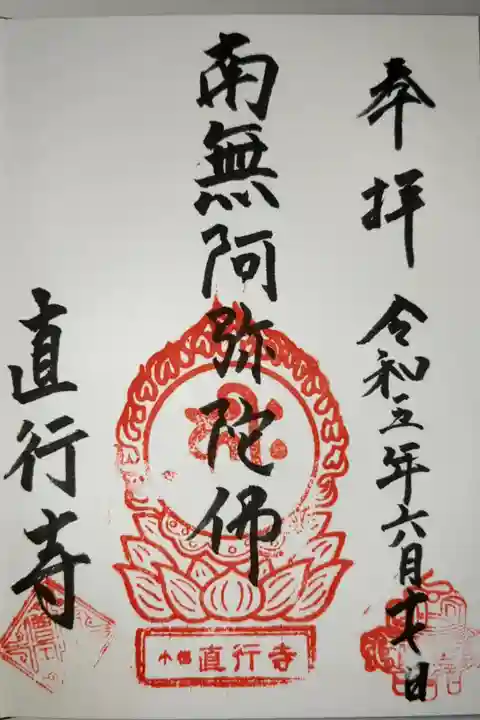 奉拝 令和五年六月十七日
南無阿弥陀佛
直行寺
小樽 直行寺